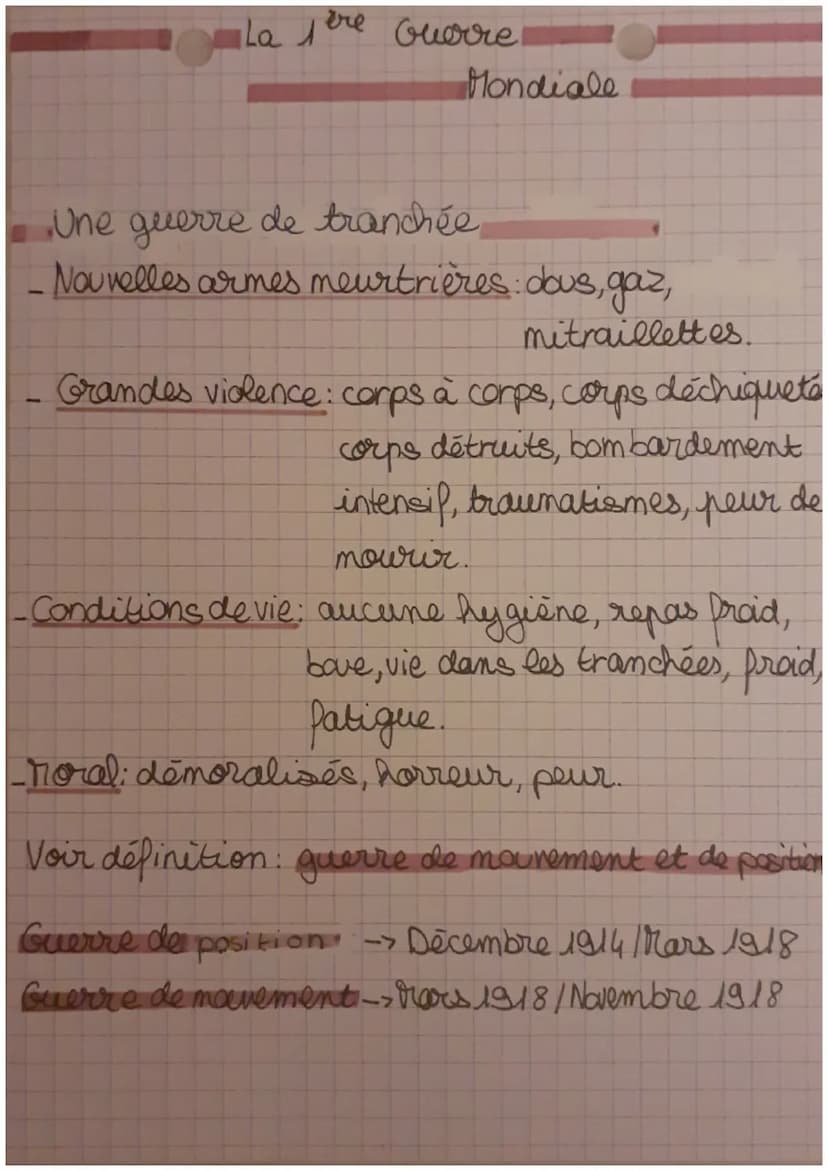 La 1ère Guerre
Mondiale
Une guerre de tranchée
- Nouvelles armes meurtrières : obus, gaz,
mitraillettes.
- Grandes violence : corps à corps, corps déchiqueté
corps détruits, bombardement
intensif, traumatismes, peur de
mourir.
- Conditions de vie : aucune hygiène, repas froid,
boue, vie dans les tranchées, froid,
fatigue.
- Moral : démoralisés, horreur, peur.
Voir définition : guerre de mouvement et de position
Guerre de position -> Décembre 1914 / Mars 1918
Guerre de mouvement -> Mars 1918 / Novembre 1918